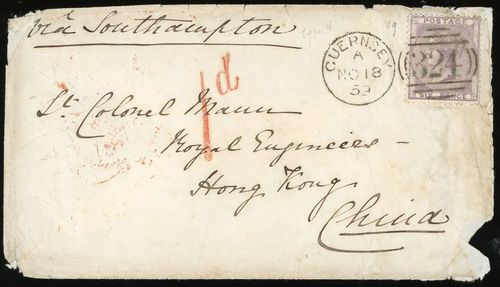 via Southampton
GUERNSEY
A
NO 18
59
POSTAGE
324
SIX PENCE
1d
Lt. Colonel Mann
Royal Engineers -
Hong Kong
China